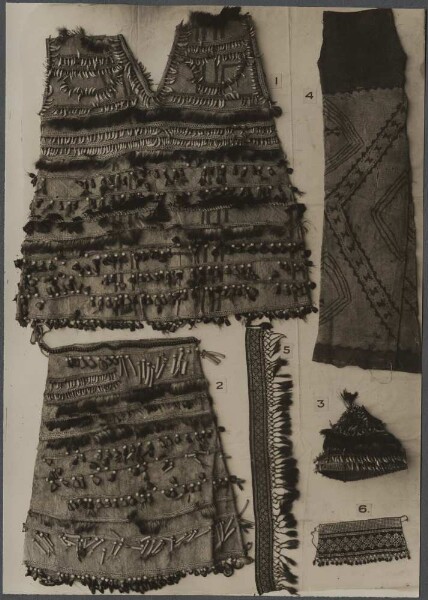 1
4
5
2
3
6.